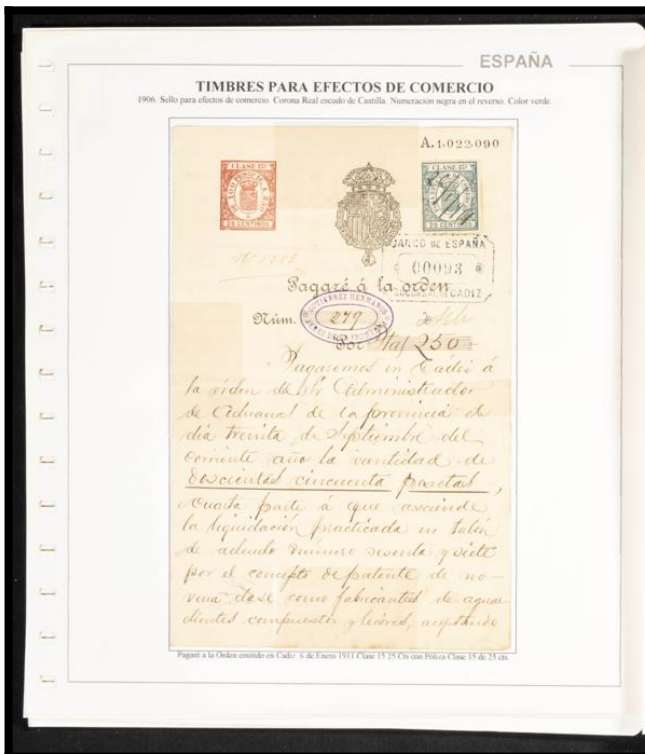 ESPAÑA
TIMBRES PARA EFECTOS DE COMERCIO
1906. Sello para efectos de comercio. Corona Real escudo de Castilla. Numeración negra en el reverso. Color verde.
A.1.022.090
CLASE 15ª
25 CENTIMOS
CLASE 15ª
25 CENTIMOS
BANCO DE ESPAÑA
00093
SUCURSAL DE CADIZ
Pagaré á la orden
GUTIÉRREZ HERMANOS
Núm. 279
Por Ptas 250
Pagaremos en Cádiz á
la orden del Sr Administrador
de Aduanas de la provincia el
día treinta de Septiembre del
corriente año la cantidad de
doscientas cincuenta pesetas,
cuarta parte á que asciende
la liquidación practicada en talón
de adeudo número sesenta y siete
por el concepto de patente de no-
vena clase como fabricantes de aguar-
dientes compuestos y licores, aceptando
Pagaré a la Orden emitido en Cadiz 6 de Enero 1911 Clase 15 25 Cts con Póliza Clase 15 de 25 cts.